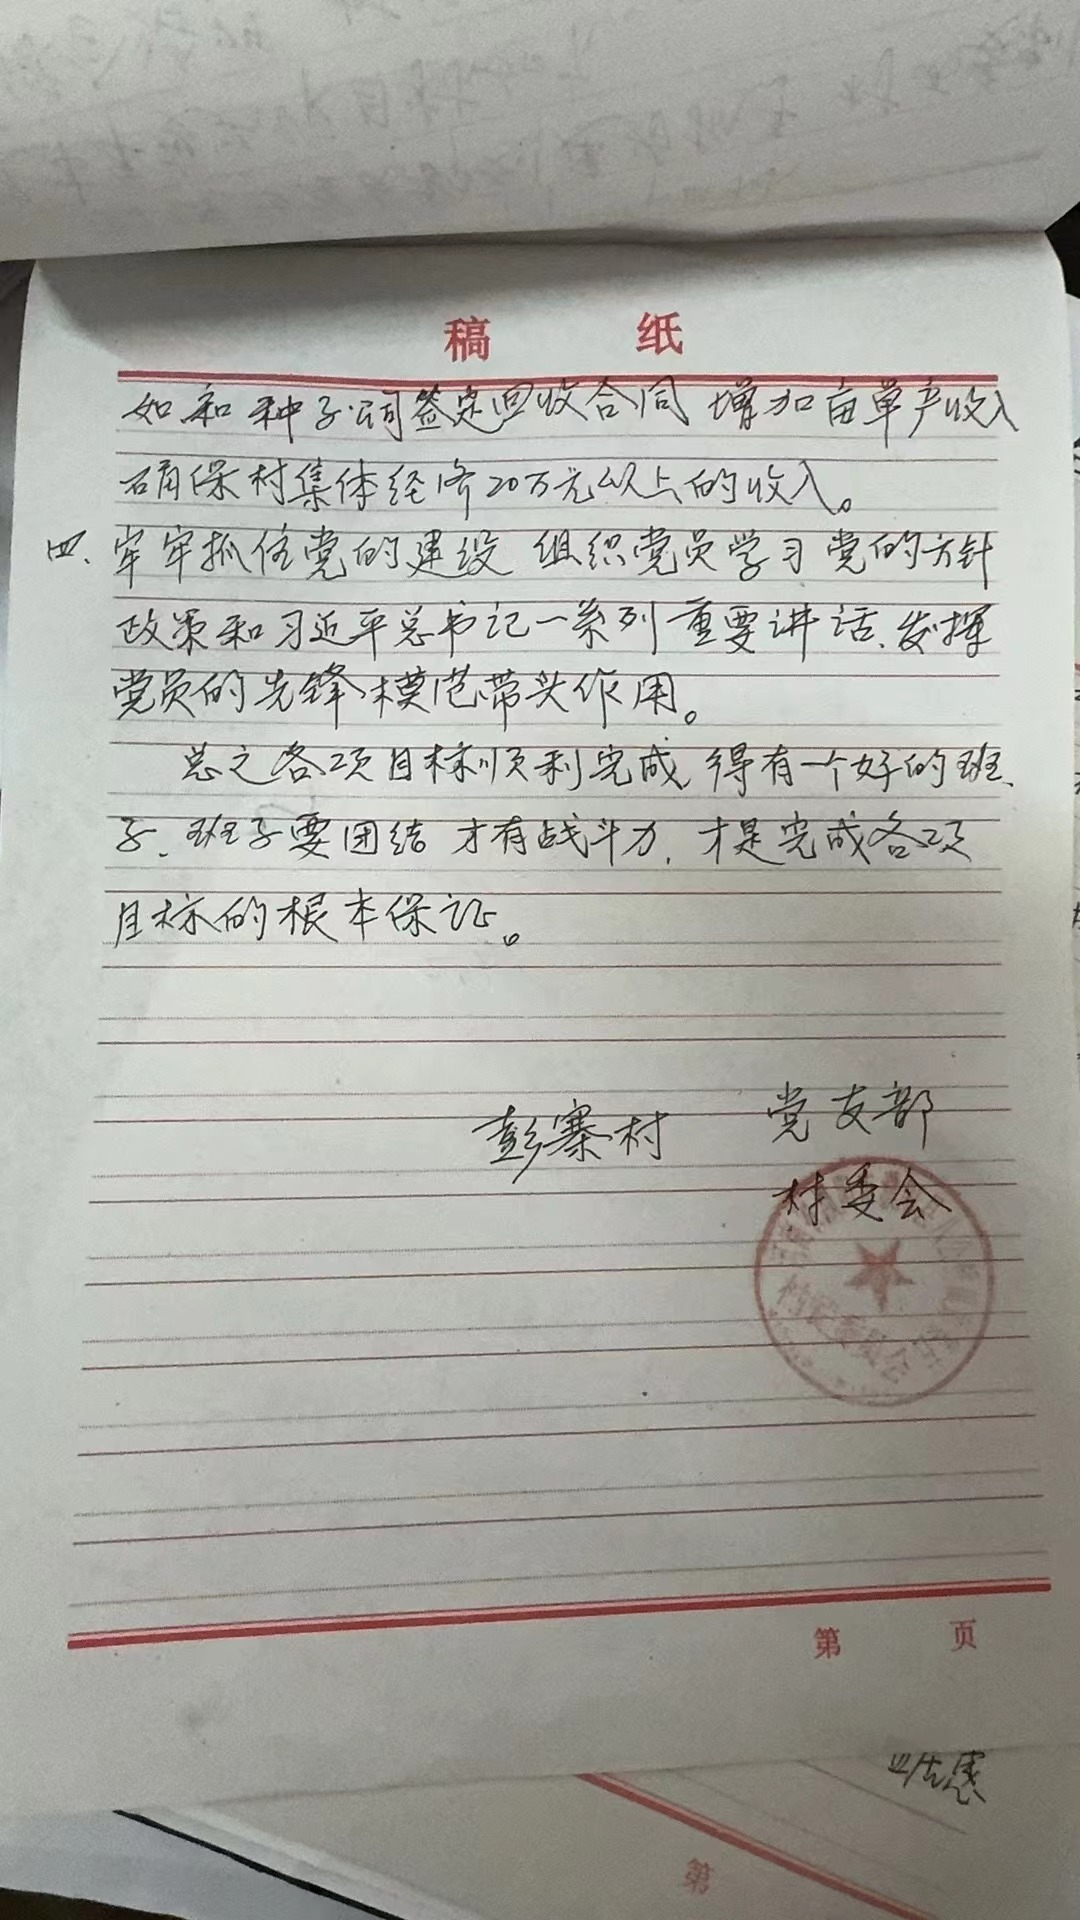 稿 纸
如和种子公司签定回收合同 增加亩单产收入
确保村集体经济20万元以上的收入。
四、牢牢抓住党的建设 组织党员学习党的方针
政策和习近平总书记一系列重要讲话、发挥
党员的先锋模范带头作用。
总之各项目标顺利完成,得有一个好的班
子、班子要团结 才有战斗力,才是完成各项
目标的根本保证。
彭寨村 党支部
村委会
第 页
第